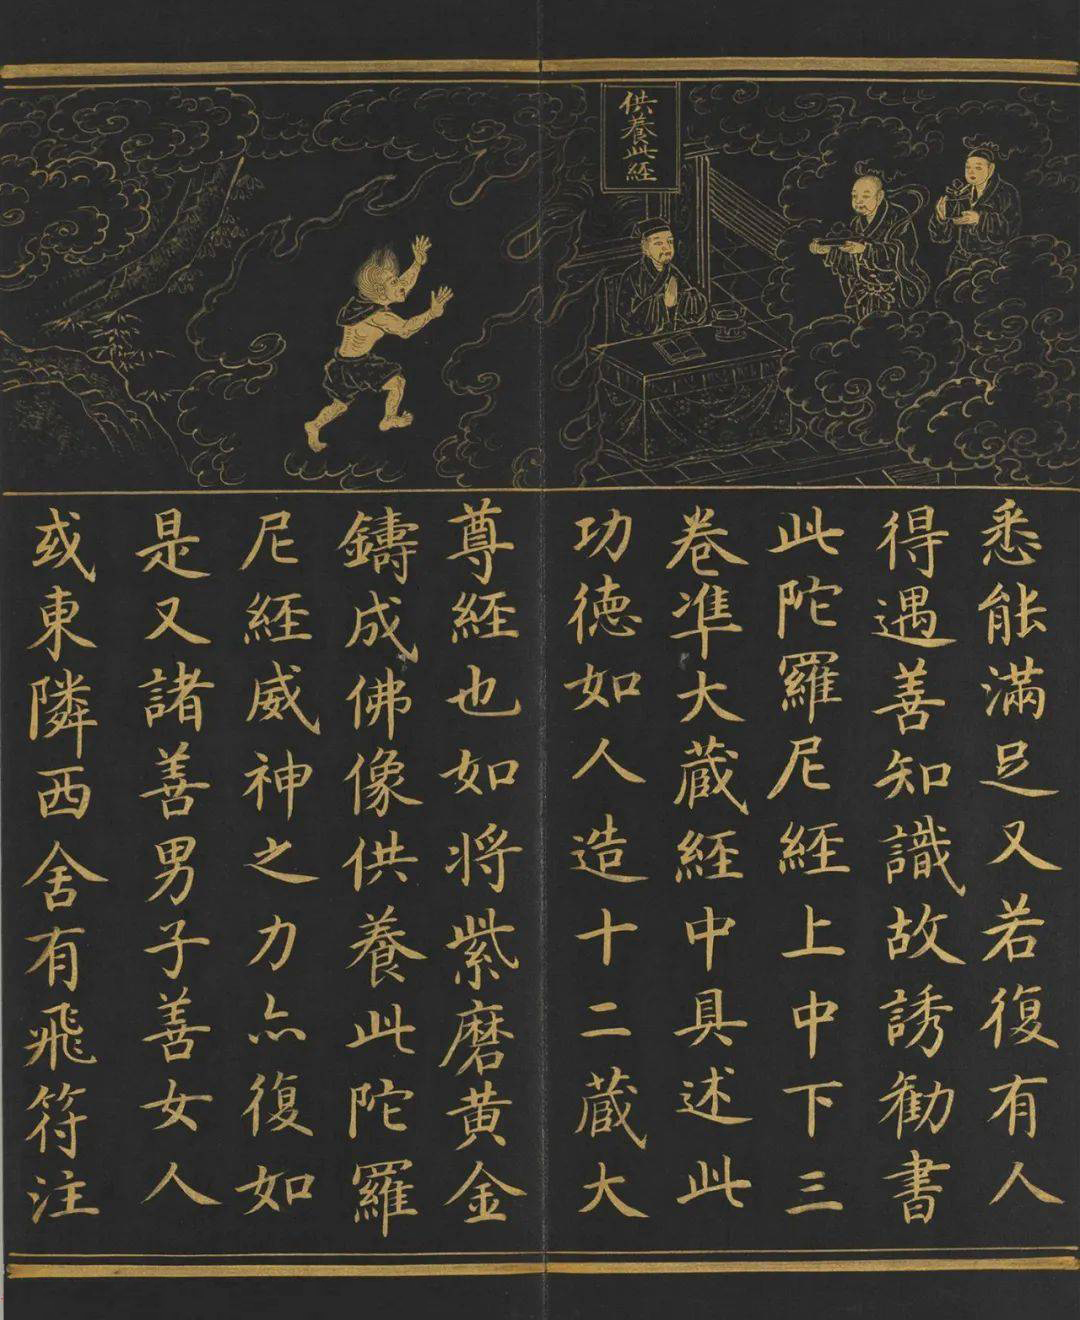 供養此經
悉能滿足又若復有人
得遇善知識故誘勸書
此陀羅尼經上中下三
卷準大藏經中具述此
功德如人造十二藏大
尊經也如將紫磨黄金
鑄成佛像供養此陀羅
尼經威神之力亦復如
是又諸善男子善女人
或東隣西舍有飛符注